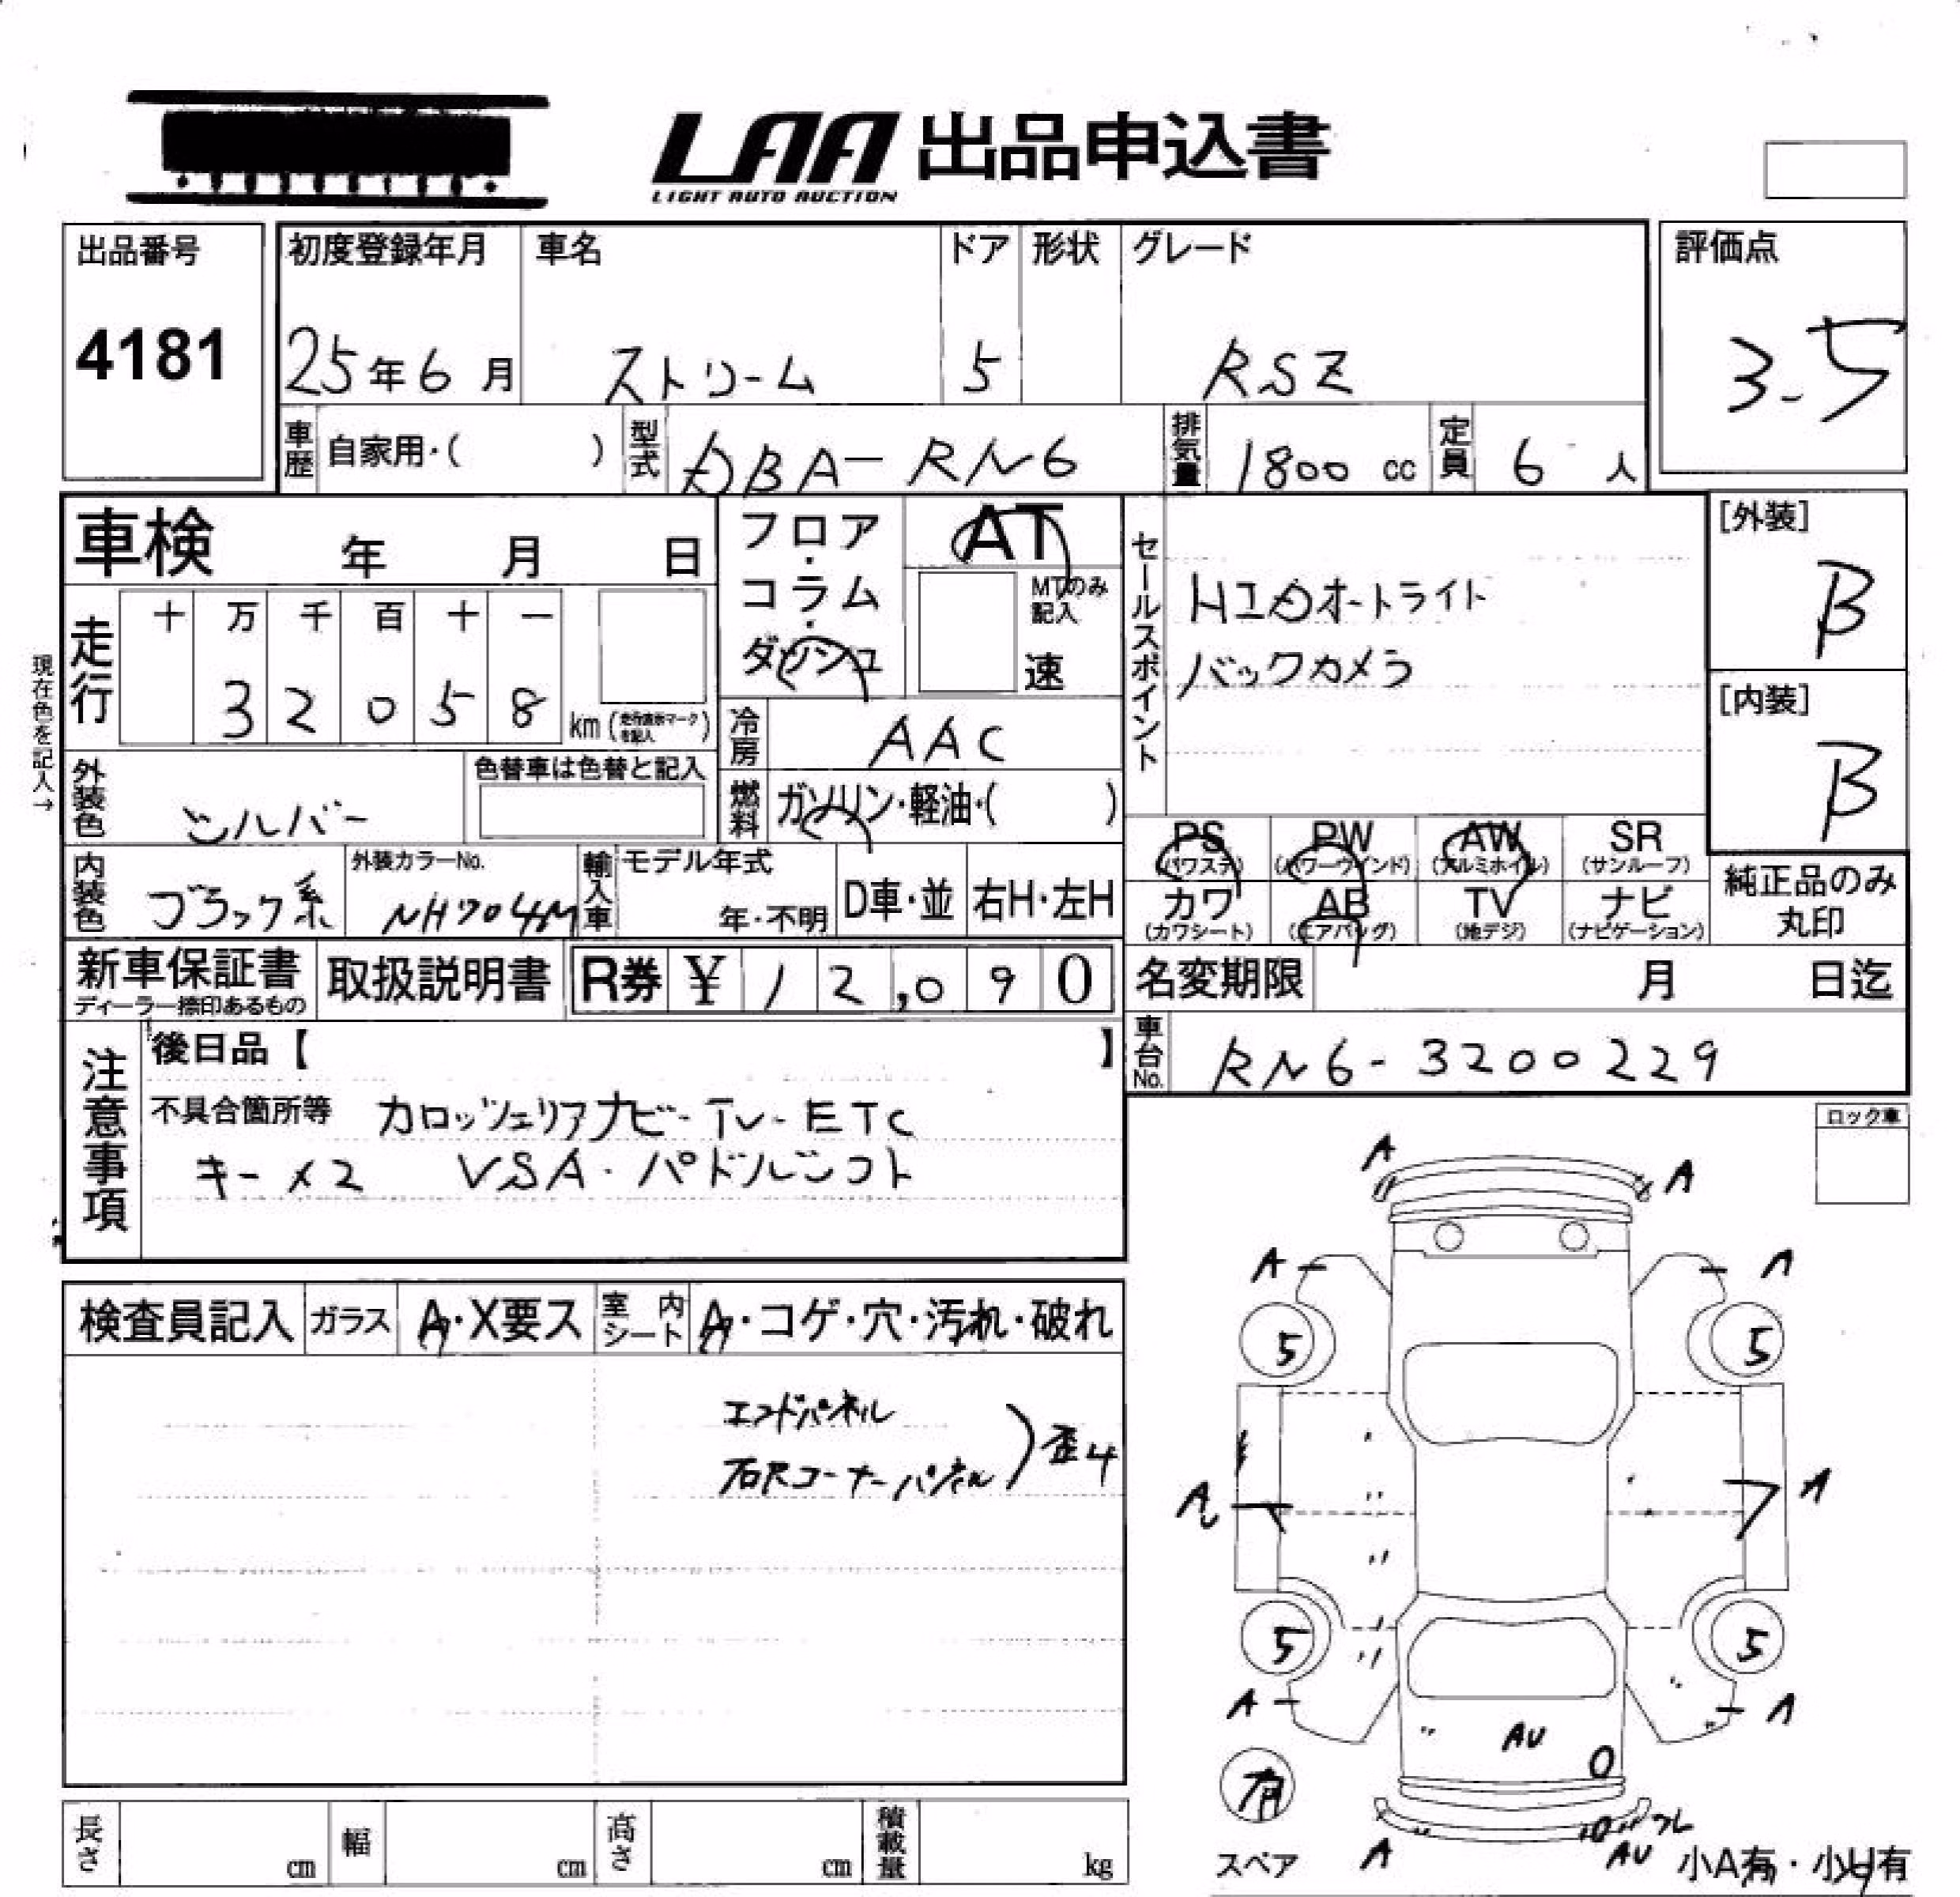 LAA 出品申込書
LIGHT AUTO AUCTION
出品番号 初度登録年月 車名 ドア 形状 グレード 評価点
4181 25年6月 ストリーム 5 RSZ 3.5
車歴 自家用・( ) 型式 DBA-RN6 排気量 1800 cc 定員 6 人
車検 年 月 日 フロア・コラム・ダッシュ AT MTのみ記入 速
セールスポイント HIDオートライト
バックカメラ
[外装] B
[内装] B
現在色を記入→
走行 十 万 千 百 十 一
3 2 0 5 8 km (走行表示マークを記入)
冷房 AAC
外装色 シルバー 色替車は色替と記入 燃料 ガソリン・軽油・( )
内装色 ブラック系 外装カラーNo. NH704M 輸入車 モデル年式 年・不明 D車・並 右H・左H
PS (パワステ) PW (パワーウインド) AW (アルミホイル) SR (サンルーフ)
カワ (カワシート) AB (エアバッグ) TV (地デジ) ナビ (ナビゲーション)
純正品のみ
丸印
新車保証書 取扱説明書 R券 ¥ 12,090 名変期限 月 日迄
ディーラー捺印あるもの
車台No. RN6-3200229
注意事項 後日品【 】
不具合箇所等 カロッツェリアナビ-TV-ETC
キー×2 VSA・パドルシフト
ロック車
検査員記入 ガラス A・X要ス 室内シート A・コゲ・穴・汚れ・破れ
エンドパネル
右Rコーナーパネル ) 歪4
A A
A A
5 5
A A
5 5
A A
AU
有
スペア A AU 小A有・小U有
長さ cm 幅 cm 高さ cm 積載量 kg